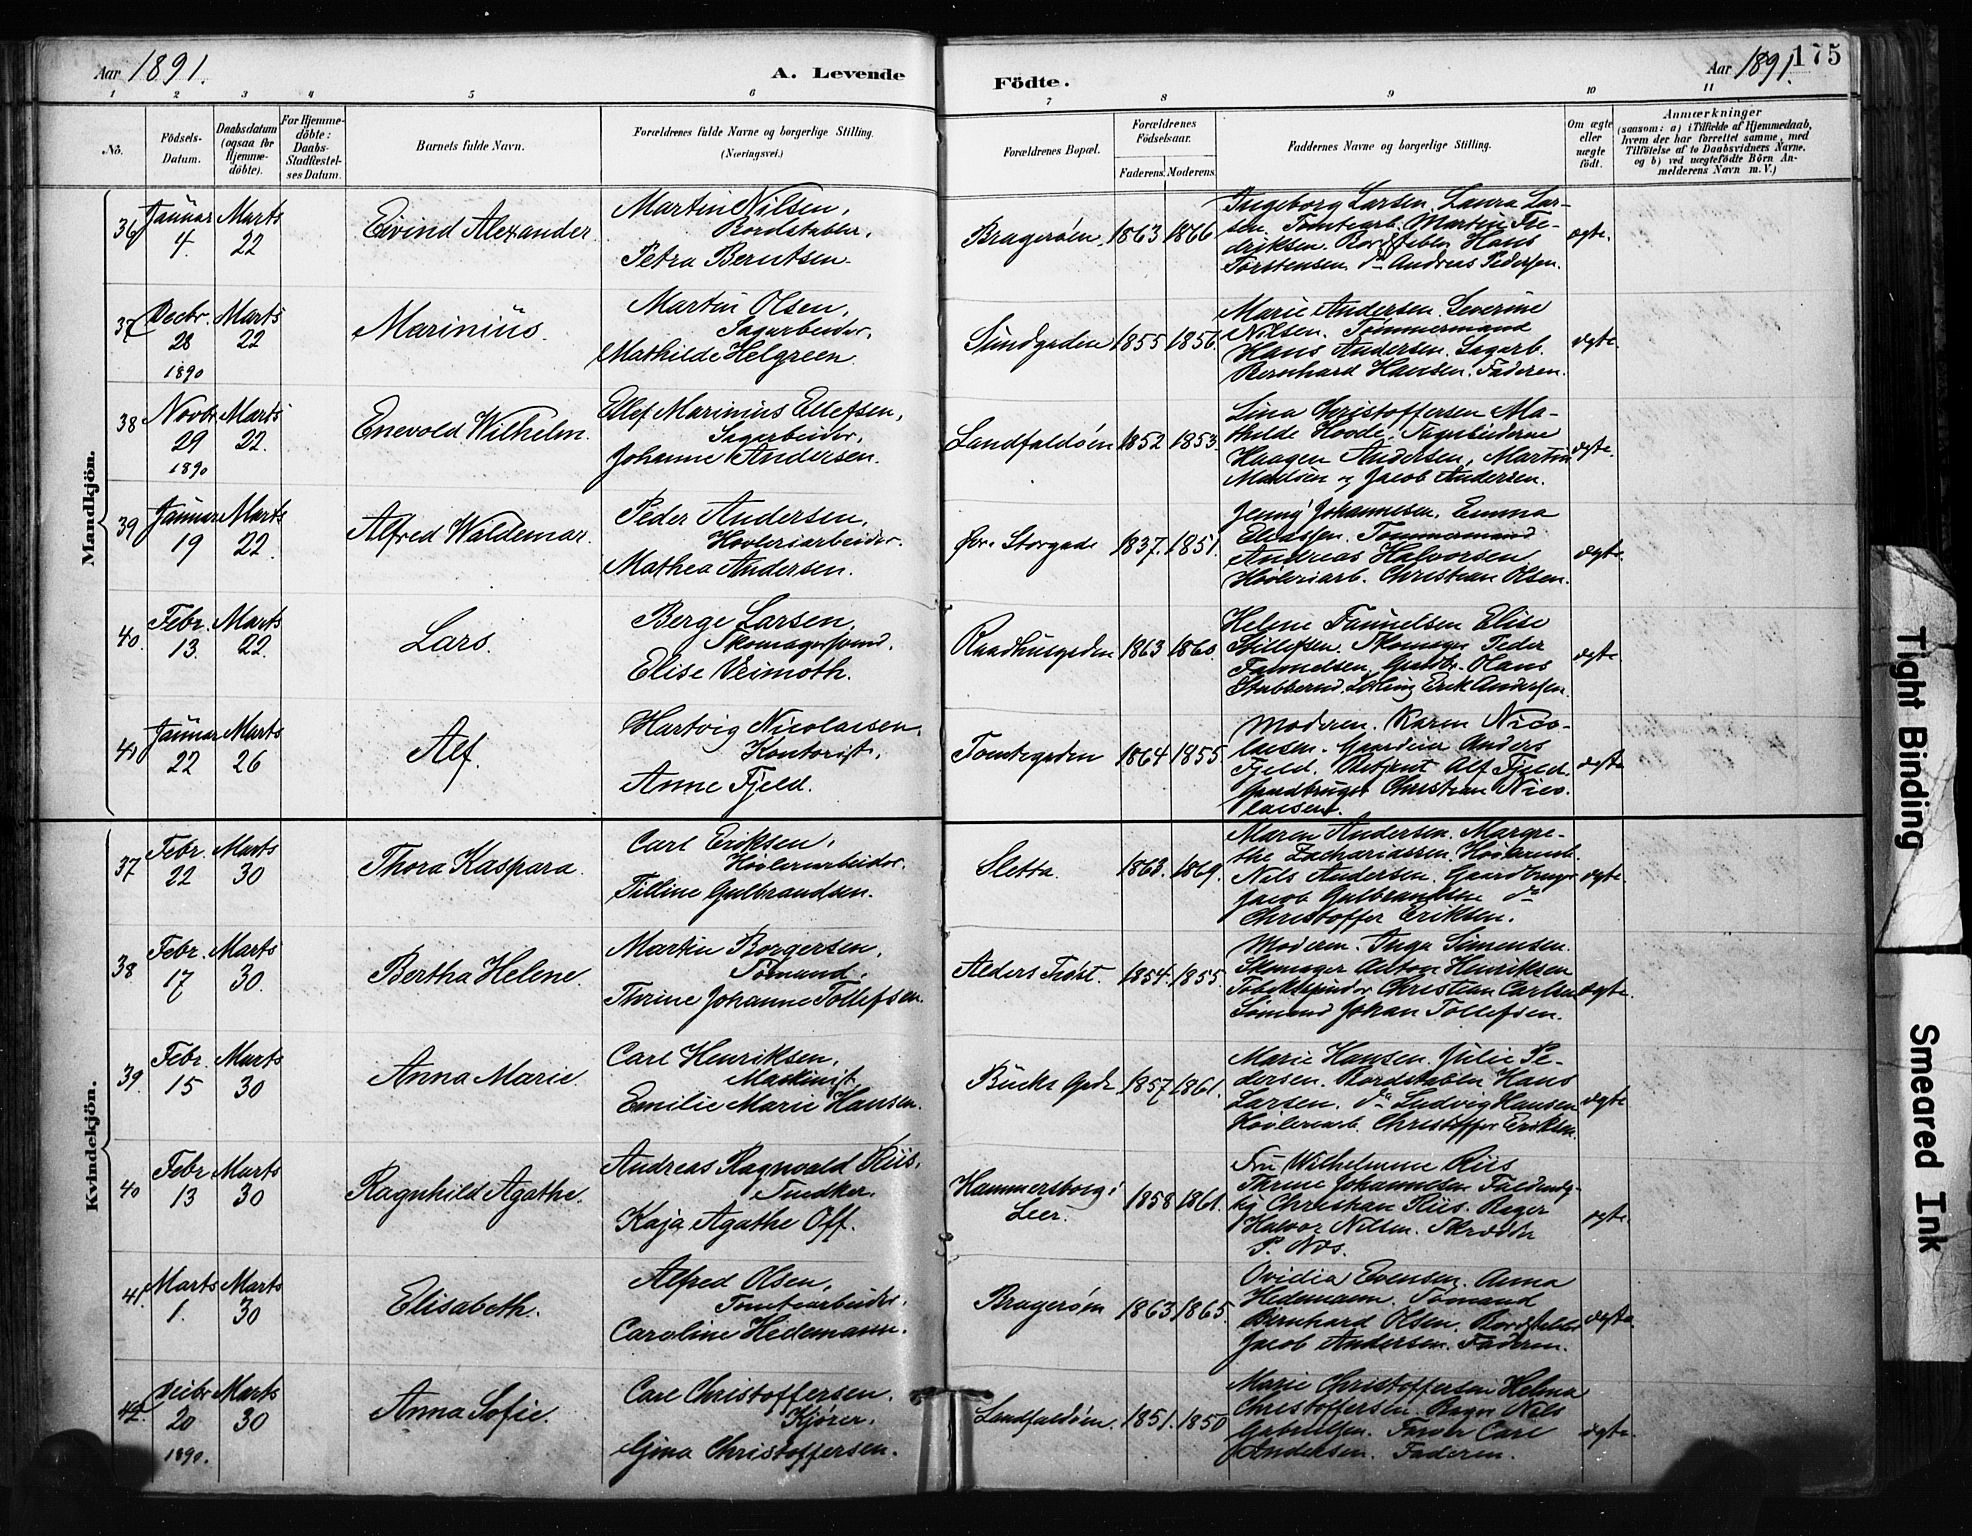 Aar 1891.
A. Levende
Födte.
Aar 1891.
175
1 2 3 4 5 6 7 8 9 10 11
No.
Födsels-
Datum.
Daabsdatum
(ogsaa for
Hjemme-
döbte).
For Hjemme-
döbte:
Daabs-
Stadfæstel-
ses Datum.
Barnets fulde Navn.
Forældrenes fulde Navne og borgerlige Stilling.
(Næringsvei.)
Forældrenes Bopæl.
Forældrenes
Födselsaar.
Faderens. Moderens.
Faddernes Navne og borgerlige Stilling.
Om ægte
eller
uægte
födt.
Anmærkninger
(saasom: a) i Tilfælde af Hjemmedaab,
hvem der har forrettet samme, med
Tilföielse af to Daabsvidners Navne.
og b) ved uægtefödte Börn An-
melderens Navn m. V.)
Mandkjön.
36 Januar 4. Marts 22 Eivind Alexander
Martin Nilsen,
Bordstabler,
Petra Berntsen.
Bragerøen. 1863 1866
Ingeborg Larsen. Laura Lar-
sen. Tomtearb. Martin Fre-
driksen. Bordstabler Hans
Torstensen. do Andreas Pedersen.
ægte.
37 Decbr. 28 1890 Marts 22 Marinius.
Martin Olsen,
Sagarbeider,
Mathilde Helgreen.
Sundgaden 1855 1856.
Marie Andersen. Severine
Nilsen. Tømmermand
Hans Andersen. Sagarb.
Bernhard Hansen. Faderen.
ægte.
38 Novbr 29 1890 Marts 22. Enevold Wilhelm.
Ellef Marinius Ellefsen,
Sagarbeider,
Johanne Andersen.
Landfaldøen 1852 1853.
Lina Christoffersen Ma-
thilde Hovde. Sagarbeiderne
Haagen Andersen, Martin
Madsen og Jacob Andersen.
ægte.
39 Januar 19 Marts 22. Alfred Waldemar.
Peder Andersen,
Høvleriarbeider.
Mathea Andersen.
Øvre Storgade 1837. 1851.
Jenny Johannesen. Emma
Eliassen. Tømmermand
Andreas Halvorsen
Høvleriarb. Christian Olsen.
ægte.
40. Febr. 13. Marts 22. Lars.
Berge Larsen,
Skomagersvend.
Elise Veimoth.
Raadhusgaden 1863 1860.
Helene Samuelsen Elise
Skomager Peder
Samuelsen. Hans
Erik Andersen.
ægte
41 Januar 22 Marts 26 Alf.
Hartvig Nicolaisen,
Kontorist,
Anne Fjeld.
Tomtegaden 1864 1855.
Moderen. Karen Nico-
laisen. Gaardeier Anders
Fjeld. Betjent Alf Fjeld.
Gaardbruger Christian Nico-
laisen.
ægte
Kvindekjön.
37 Febr. 22 Marts 30 Thora Kaspara.
Carl Eriksen,
Høvleriarbeider.
Tilline Gulbrandsen.
Sletta. 1863. 1869.
Maren Andersen. Margre-
the Zachariassen. Høvleriarb.
Nils Andersen. Gaardbruger
Jacob Gulbrandsen do
Christoffer Eriksen.
ægte.
38 Febr. 17 Marts 30. Bertha Helene.
Martin Borgersen,
Sømand.
Thrine Johanne Tollefsen.
Alders Trøst. 1854. 1855.
Moderen. Inga Simensen.
Skomager Anton Henriksen
Tobakspinder Christian Carlsen
Sømand Johan Tollefsen.
ægte.
39. Febr. 15 Marts 30 Anna Marie.
Carl Henriksen,
Maskinist,
Emilie Marie Hansen.
Buchs Gade 1857 1861.
Marie Hansen. Julie Pe-
dersen. Bordstabler Hans
Larsen. do Ludvig Hansen
Høvleriarb. Christoffer Eriksen.
ægte
40 Febr 13 Marts 30 Ragnhild Agathe.
Andreas Ragnvald Riis,
Snedker.
Kaja Agathe Off.
Hammersborg i
Leer. 1858 1861.
Fru Wilhelmine Riis
Thrine Johannesen
Christian Riis. Bager
Halvor Nilsen.
ægte.
41. Marts 1. Marts 30 Elisabeth.
Alfred Olsen,
Tomtearbeider,
Caroline Hedemann.
Bragerøen 1863 1865.
Ovidia Evensen. Anna
Hedemann. Sømand
Bernhard Olsen. Bordstabler
Jacob Andersen. Faderen.
ægte.
42. Decbr 20 1890. Marts 30 Anna Sofie.
Carl Christoffersen.
Kjører.
Gina Christoffersen.
Landfaldøen. 1851. 1850
Marie Christoffersen Helma
Christoffersen. Bager Nils
Gabrielsen. Farver Carl
Andersen. Faderen.
ægte.
Tight Binding
Smeared Ink